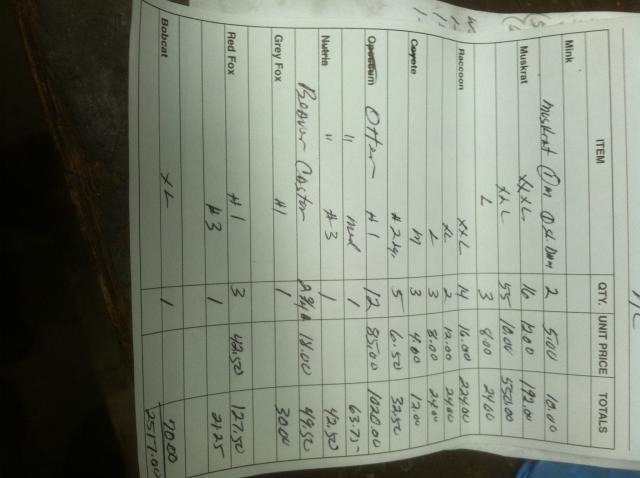 ITEM QTY. UNIT PRICE TOTALS
Mink
muskrat 1 m 1 sl. Dam 2 5.00 10.00
Muskrat XXXL 16 12.00 192.00
XXL 55 10.00 550.00
L 3 8.00 24.00
Raccoon XXL 14 16.00 224.00
XL 2 12.00 24.00
L 3 8.00 24.00
Coyote M 3 4.00 12.00
#2 5 6.50 32.50
Opossum Otter #1 12 85.00 1020.00
" med 1 63.75
Nutria " #3 1 42.50
Beaver Castor 2 3/4 18.00 49.50
Grey Fox #1 1 30.00
Red Fox #1 3 42.50 127.50
#3 1 21.25
Bobcat XL 1 70.00
2517.00